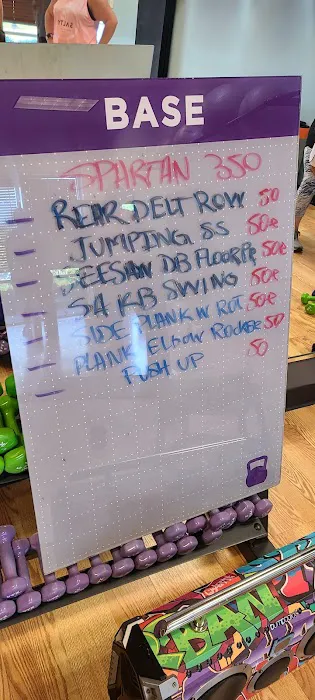 BASE
SPARTAN 350
REAR DELT ROW 50
JUMPING SS 50e
SEESAW DB FLOOR PR 50e
SA KB SWING 50e
SIDE PLANK W ROT 50e
PLANK ELBOW ROCKER 50
PUSH UP 50
BAN